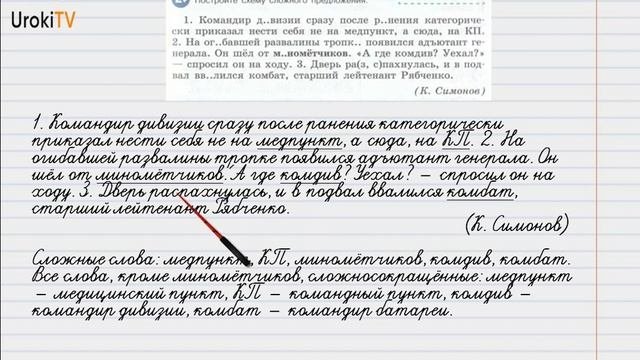 UrokiTV
Постройте схему сложного предложения.
1. Командир д..визии сразу после р..нения категориче-
ски приказал нести себя не на медпункт, а сюда, на КП.
2. На ог..бавшей развалины тропк.. появился адъютант ге-
нерала. Он шёл от м..номётчиков. «А где комдив? Уехал?»
— спросил он на ходу. 3. Дверь ра(з, с)пахнулась, и в под-
вал вв..лился комбат, старший лейтенант Рябченко.
(К. Симонов)
1. Командир дивизии сразу после ранения категорически
приказал нести себя не на медпункт, а сюда, на КП. 2. На
огибавшей развалины тропке появился адъютант генерала. Он
шёл от миномётчиков."А где комдив? Уехал? – спросил он на
ходу. 3. Дверь распахнулась, и в подвал ввалился комбат,
старший лейтенант Рябченко.
(К. Симонов)
Сложные слова: медпункт, КП, миномётчиков, комдив, комбат.
Все слова, кроме миномётчиков, сложносокращённые: медпункт
– медицинский пункт, КП – командный пункт, комдив –
командир дивизии, комбат – командир батареи.